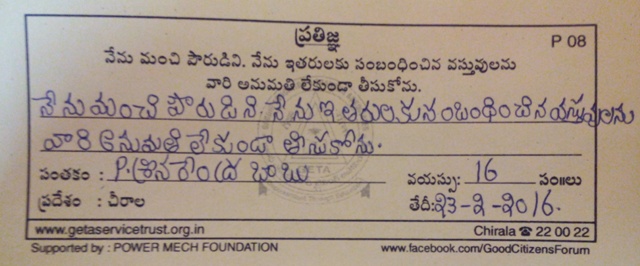 ప్రతిజ్ఞ
P 08
నేను మంచి పౌరుడిని. నేను ఇతరులకు సంబంధించిన వస్తువులను
వారి అనుమతి లేకుండా తీసుకోను.
నేను మంచి పౌరుడిని నేను ఇతరులకు సంబంధించిన వస్తువులను
వారి అనుమతి లేకుండా తీసుకోను.
సంతకం : P. బాబు వయస్సు: 16 సం॥లు
ప్రదేశం : చీరాల తేదీ: 23-2-2016.
www.getaservicetrust.org.in Chirala ☎ 22 00 22
Supported by : POWER MECH FOUNDATION www.facebook.com/GoodCitizensForum